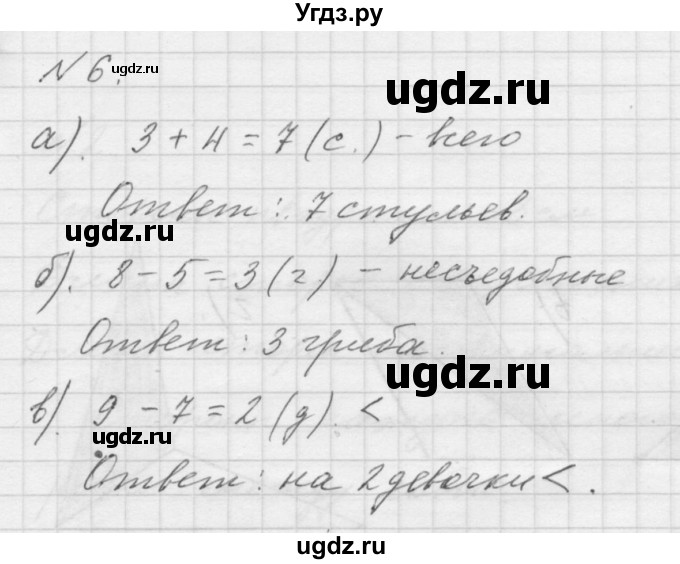 Угдз.ру
N 6.
угдз.ру
ugdz.ru
а). 3 + 4 = 7 (с.) - всего
Ответ: 7 стульев.
ugdz.ru
б). 8 - 5 = 3 (г.) - несъедобные
Ответ: 3 гриба.
ugdz.ru
в). 9 - 7 = 2 (д). <
ugdz.ru
Ответ: на 2 девочки <.
ugdz.ru